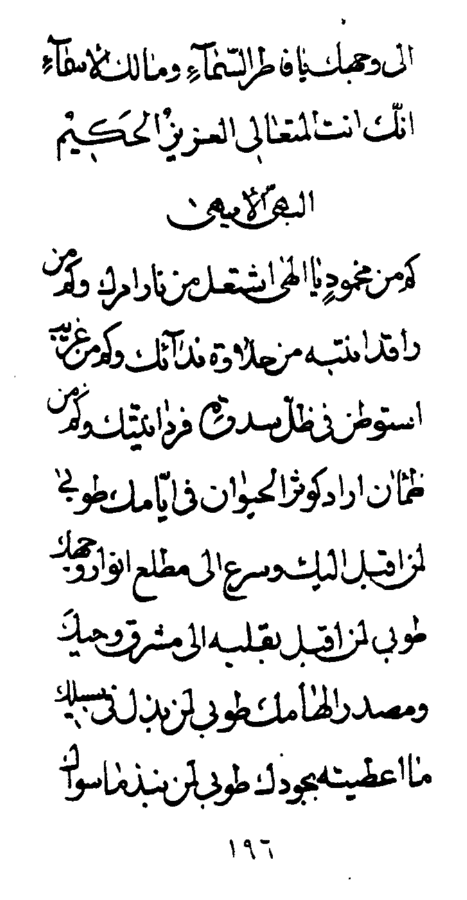 الى وجهك يا فاطر السّمآء ومالك الاسمآء
انّك انت المتعالى العزيز الحكيم
البهىّ الأبهى
كم من مخمودٍ يا الهى اشتعل من نار امرك وكم من
راقد انتبه من حلاوة ندآئك وكم من غريب
استوطن فى ظلّ سدرة فردانيّتك وكم من
ظمئان اراد كوثر الحيوان فى ايّامك طوبى
لمن اقبل اليك وسرع الى مطلع انوار وجهك
طوبى لمن اقبل بقلبه الى مشرق وحيك
ومصدر الهامك طوبى لمن بذل فى سبيلك
ما اعطيته بجودك طوبى لمن نبذ ما سواك
١٩٦